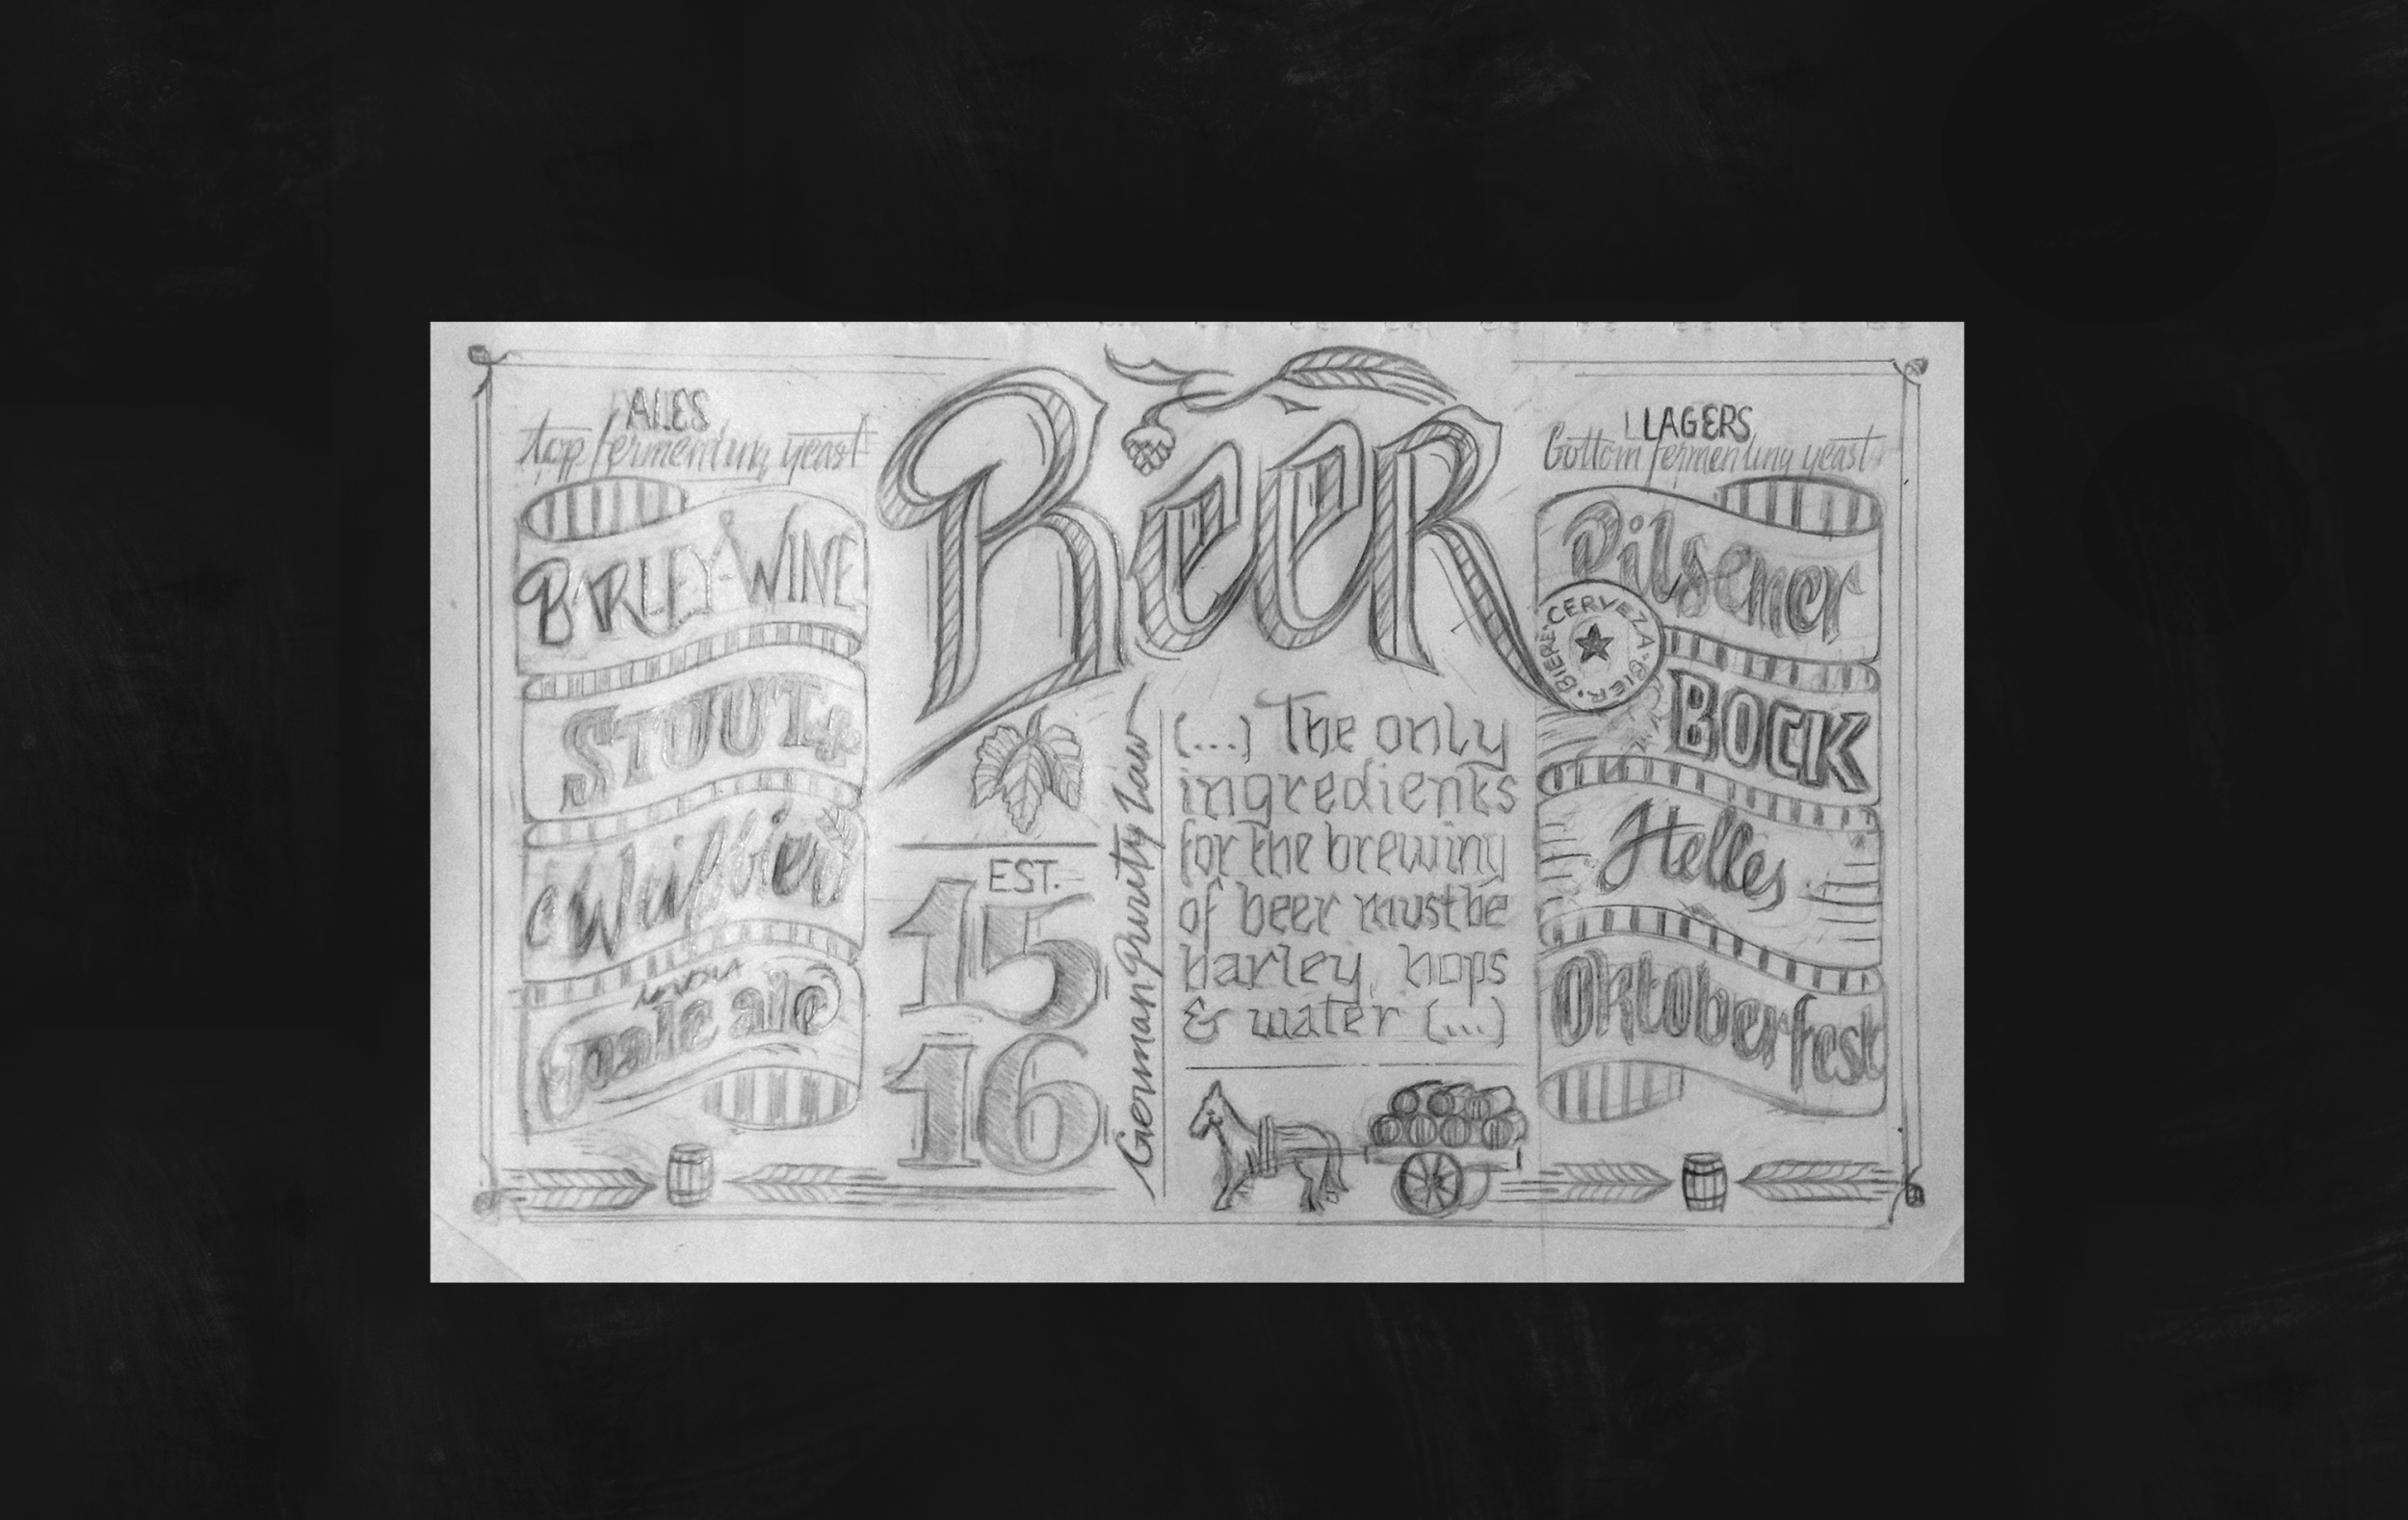 Beer
ALES
top fermenting yeast
BARLEY-WINE
STOUT
Weißbier
INDIA
pale ale
EST.
15
16
German Purity Law
(...) The only
ingredients
for the brewing
of beer must be
barley, hops
& water (...)
LAGERS
Bottom fermenting yeast
Pilsener
CERVEZA · BIER · BIERE ·
BOCK
Helles
Oktoberfest